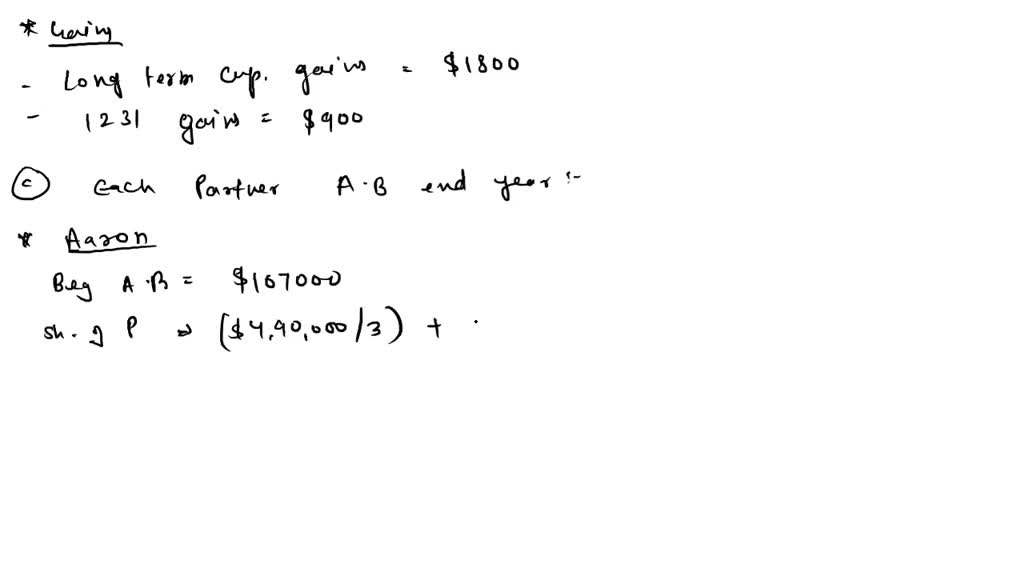 * Gains
- Long term cap. gains = $1800
- 1231 gains = $900
(c) Each Partner A.B end year :-
* Aaron
Beg A.B = $107000
sh. g P ⇒ ($4,90,000/3) +